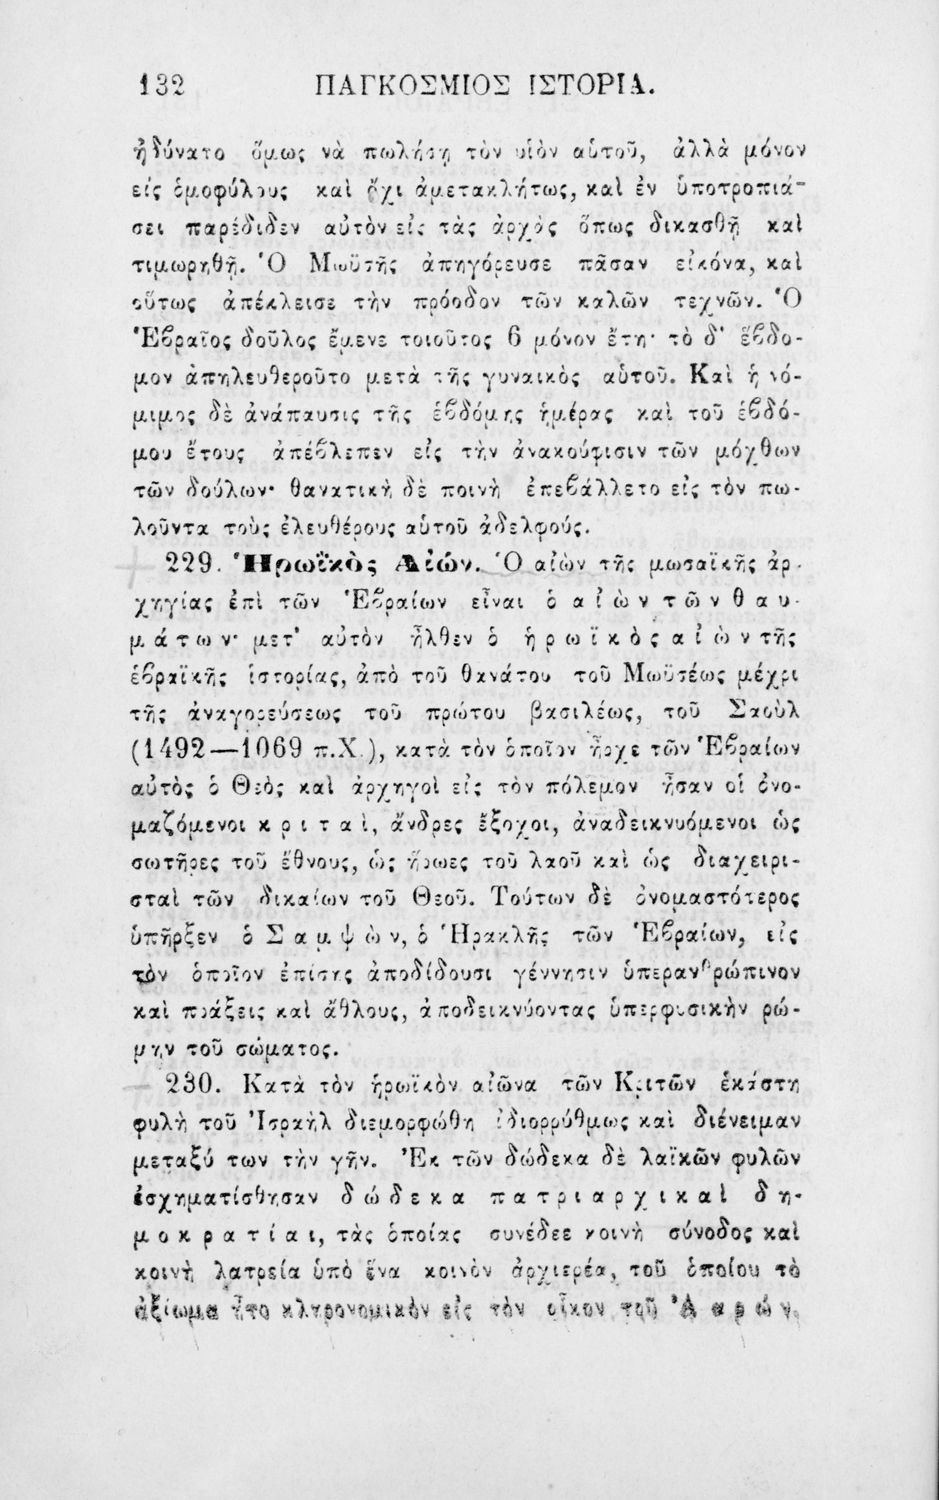 132 ΠΑΓΚΟΣΜΙΟΣ ΙΣΤΟΡΙΑ.
ἠδύνατο ὅμως νὰ πωλήσῃ τὸν υἱὸν αὑτοῦ, ἀλλὰ μόνον
εἰς ὁμοφύλους καὶ ὄχι ἀμετακλήτως, καὶ ἐν ὑποτροπιά-
σει παρέδιδεν αὐτὸν εἰς τὰς ἀρχὰς ὅπως δικασθῇ καὶ
τιμωρηθῇ. Ὁ Μωϋσῆς ἀπηγόρευσε πᾶσαν εἰκόνα, καὶ
οὕτως ἀπέκλεισε τὴν πρόοδον τῶν καλῶν τεχνῶν. Ὁ
Ἑβραῖος δοῦλος ἔμενε τοιοῦτος 6 μόνον ἔτη· τὸ δ' ἕβδο-
μον ἀπηλευθεροῦτο μετὰ τῆς γυναικὸς αὑτοῦ. Καὶ ἡ νό-
μιμος δὲ ἀνάπαυσις τῆς ἑβδόμης ἡμέρας καὶ τοῦ ἑβδό-
μου ἔτους ἀπέβλεπεν εἰς τὴν ἀνακούφισιν τῶν μόχθων
τῶν δούλων· θανατικὴ δὲ ποινὴ ἐπεβάλλετο εἰς τὸν πω-
λοῦντα τοὺς ἐλευθέρους αὑτοῦ ἀδελφούς.
229. Ἡρωϊκὸς Αἰών. Ὁ αἰὼν τῆς μωσαϊκῆς ἀρ-
χηγίας ἐπὶ τῶν Ἑβραίων εἶναι ὁ αἰὼν τῶν θαυ-
μάτων· μετ' αὐτὸν ἦλθεν ὁ ἡρωϊκὸς αἰὼν τῆς
ἑβραϊκῆς ἱστορίας, ἀπὸ τοῦ θανάτου τοῦ Μωϋσέως μέχρι
τῆς ἀναγορεύσεως τοῦ πρώτου βασιλέως, τοῦ Σαοὺλ
(1492—1069 π.Χ.), κατὰ τὸν ὁποῖον ἦρχε τῶν Ἑβραίων
αὐτὸς ὁ Θεὸς καὶ ἀρχηγοὶ εἰς τὸν πόλεμον ἦσαν οἱ ὀνο-
μαζόμενοι κριταὶ, ἄνδρες ἔξοχοι, ἀναδεικνυόμενοι ὡς
σωτῆρες τοῦ ἔθνους, ὡς ἥρωες τοῦ λαοῦ καὶ ὡς διαχειρι-
σταὶ τῶν δικαίων τοῦ Θεοῦ. Τούτων δὲ ὀνομαστότερος
ὑπῆρξεν ὁ Σαμψὼν, ὁ Ἡρακλῆς τῶν Ἑβραίων, εἰς
τὸν ὁποῖον ἐπίσης ἀποδίδουσι γέννησιν ὑπερανθρώπινον
καὶ πράξεις καὶ ἄθλους, ἀποδεικνύοντας ὑπερφυσικὴν ῥώ-
μην τοῦ σώματος.
230. Κατὰ τὸν ἡρωϊκὸν αἰῶνα τῶν Κριτῶν ἑκάστη
φυλὴ τοῦ Ἰσραὴλ διεμορφώθη ἰδιορρύθμως καὶ διένειμαν
μεταξύ των τὴν γῆν. Ἐκ τῶν δώδεκα δὲ λαϊκῶν φυλῶν
ἐσχηματίσθησαν δώδεκα πατριαρχικαὶ δη-
μοκρατίαι, τὰς ὁποίας συνέδεε κοινὴ σύνοδος καὶ
κοινὴ λατρεία ὑπὸ ἕνα κοινὸν ἀρχιερέα, τοῦ ὁποίου τὸ
ἀξίωμα ἦτο κληρονομικὸν εἰς τὸν οἶκον τοῦ Ἀαρών.